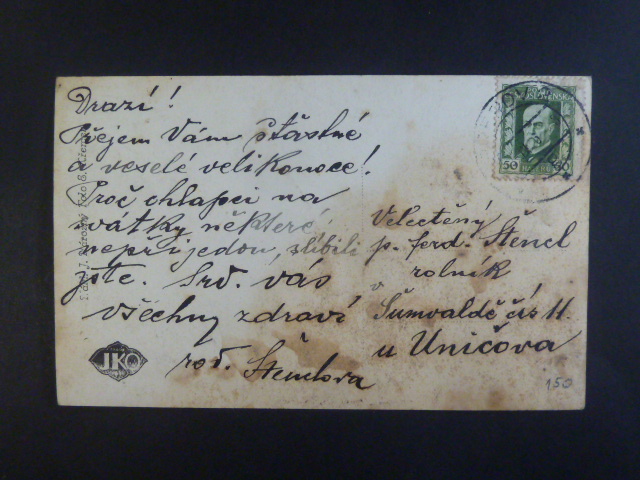 Drazí!
Přejem Vám šťastné
a veselé velikonoce!
Proč chlapci na
svátky některé
nepřijedou, slíbili
jste. Srd. vás
všechny zdraví
rod. Štenclova
Velectěný
p. ferd. Štencl
rolník
v
Šumvaldě čís 11.
u Uničova
50
JKO
150